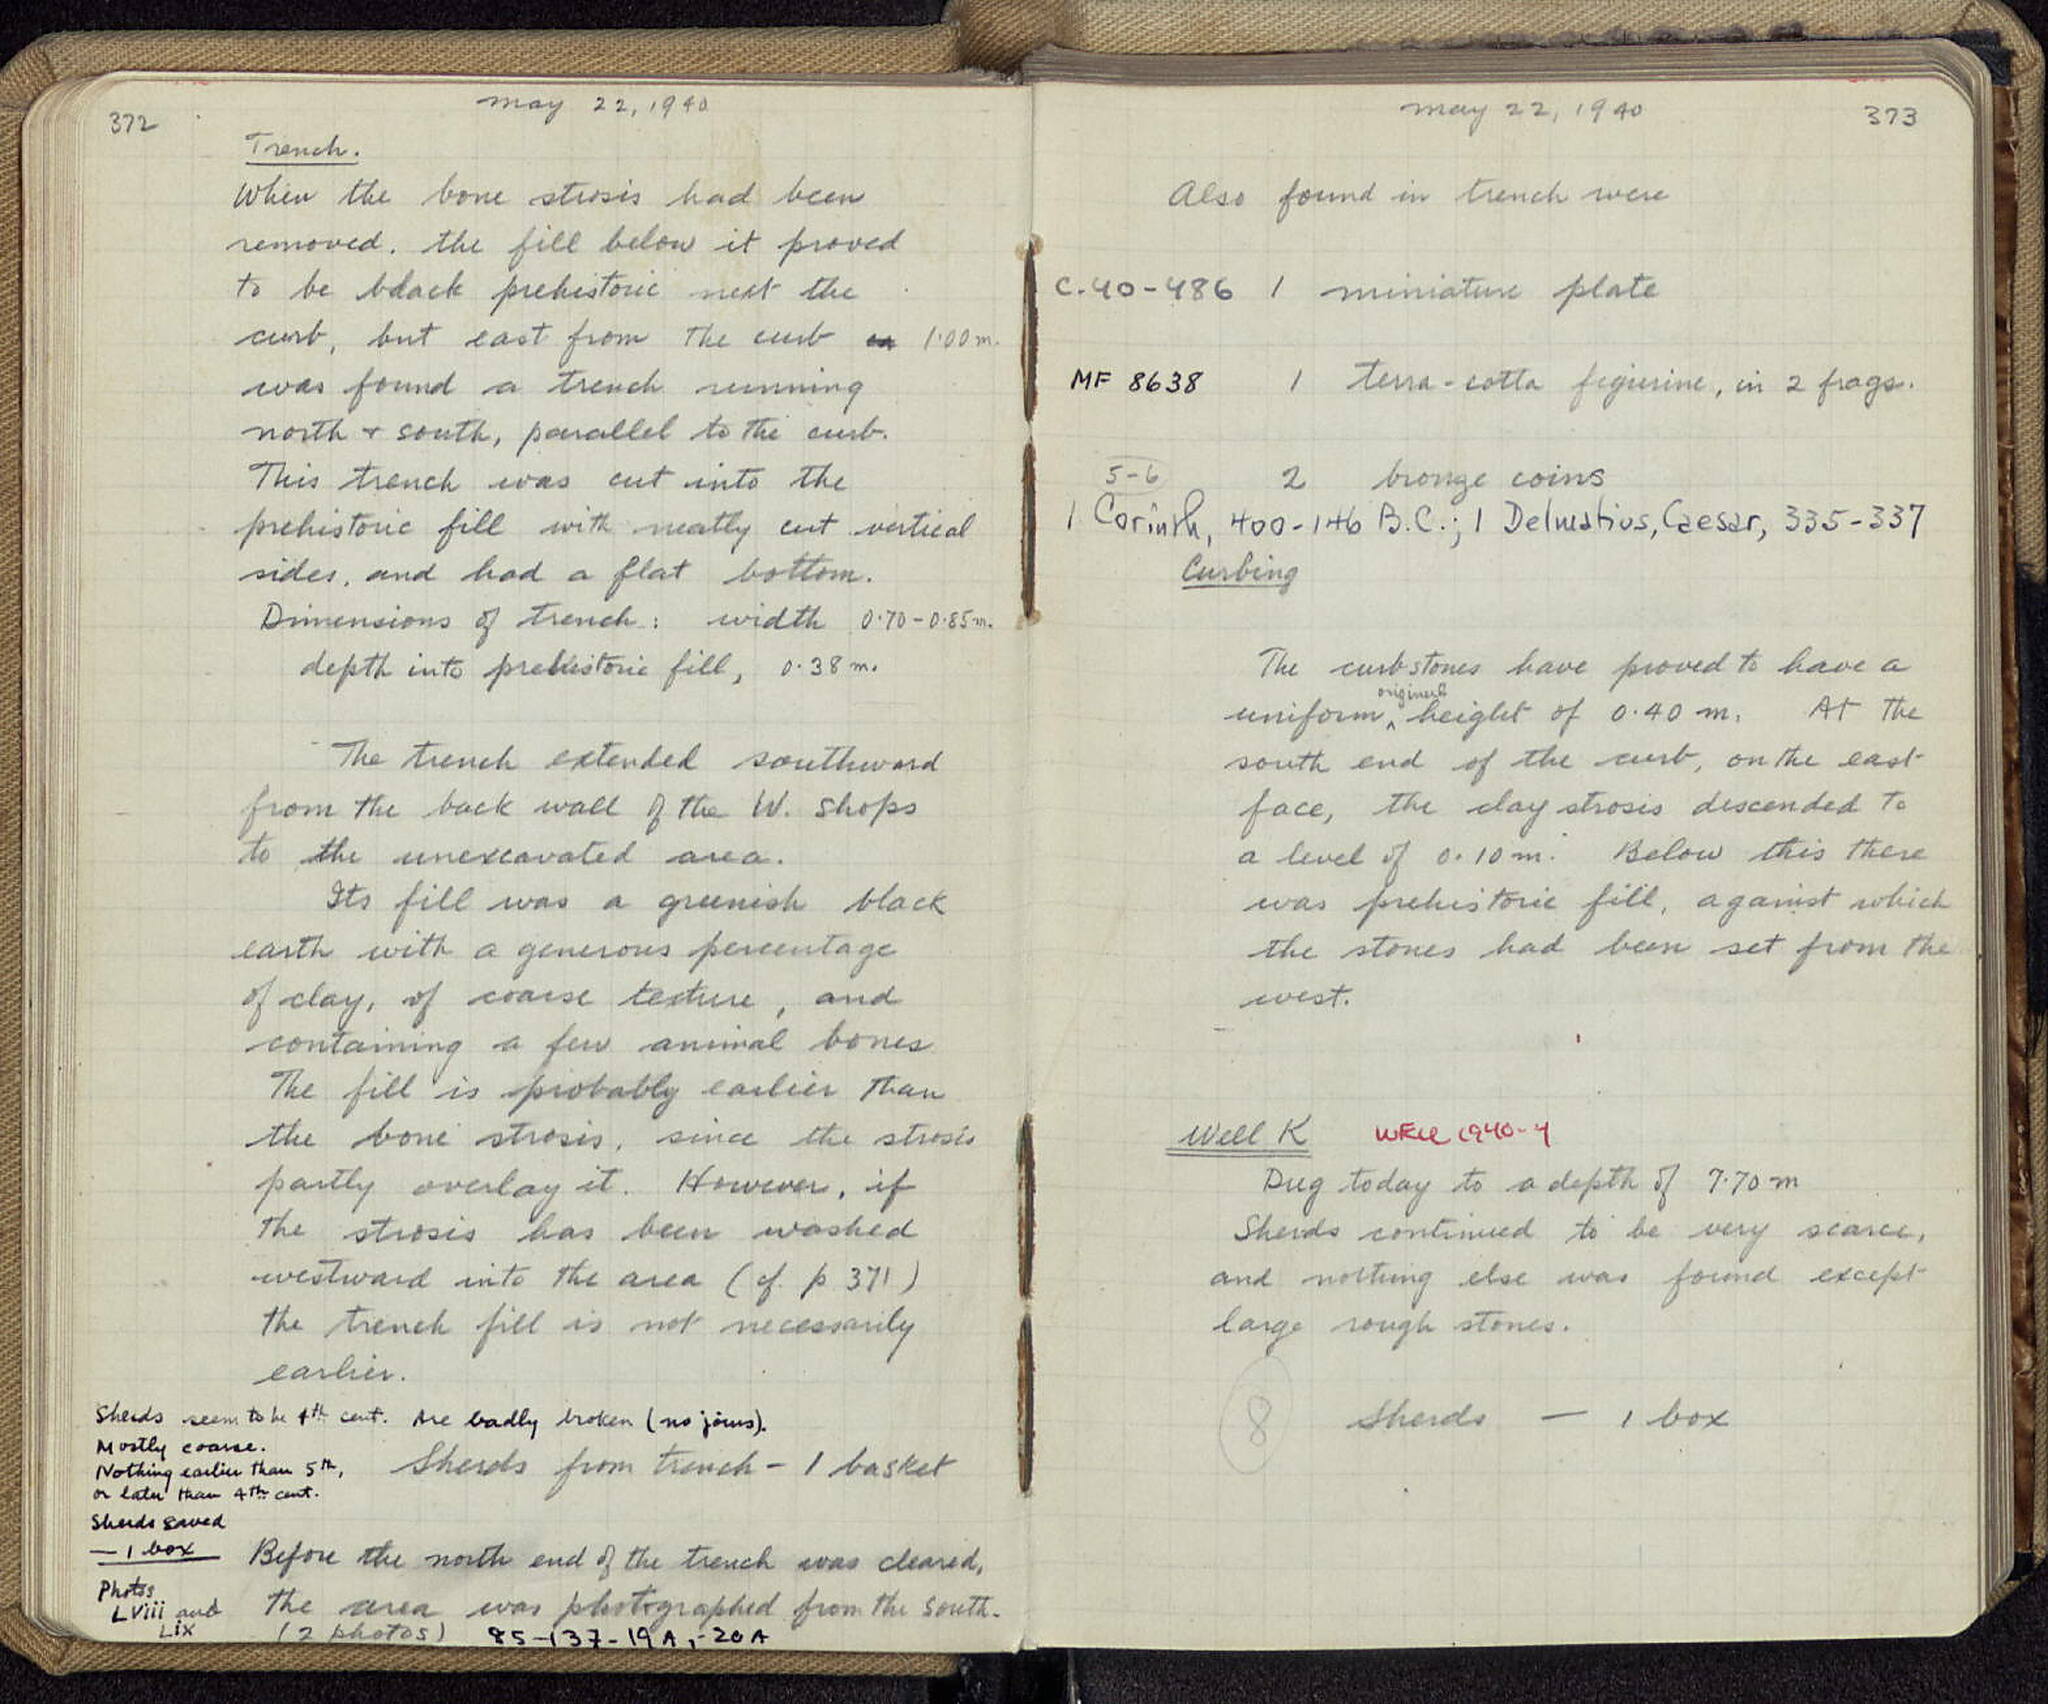 372
May 22, 1940
Trench.
When the bone strosis had been
removed, the fill below it proved
to be black prehistoric next the
curb, but east from the curb 1.00 m.
was found a trench running
north + south, parallel to the curb.
This trench was cut into the
prehistoric fill with neatly cut vertical
sides, and had a flat bottom.
Dimensions of trench: width 0.70-0.85 m.
depth into prehistoric fill, 0.38 m.
The trench extended southward
from the back wall of the W. Shops
to the unexcavated area.
Its fill was a greenish black
earth with a generous percentage
of clay, of coarse texture, and
containing a few animal bones
The fill is probably earlier than
the bone strosis, since the strosis
partly overlay it. However, if
the strosis has been washed
westward into the area (cf. p 371)
the trench fill is not necessarily
earlier.
Sherds seem to be 4th cent. Are badly broken (no joins).
Mostly coarse.
Nothing earlier than 5th,
or later than 4th cent.
Sherds saved
— 1 box
Sherds from trench - 1 basket
Before the north end of the trench was cleared,
the area was photographed from the south.
(2 photos) 85-137-19A, -20A
Photos
LViii and
Lix
May 22, 1940
373
Also found in trench were
C-40-486 1 miniature plate
MF 8638 1 terra-cotta figurine, in 2 frags.
5-6 2 bronze coins
1 Corinth, 400-146 B.C.; 1 Delmatius, Caesar, 335-337
Curbing
The curb stones have proved to have a
uniform original height of 0.40 m. At the
south end of the curb, on the east
face, the clay strosis descended to
a level of 0.10 m. Below this there
was prehistoric fill, against which
the stones had been set from the
west.
Well K WELL 1940-4
Dug today to a depth of 7.70 m
Sherds continued to be very scarce,
and nothing else was found except
large rough stones.
8 Sherds — 1 box